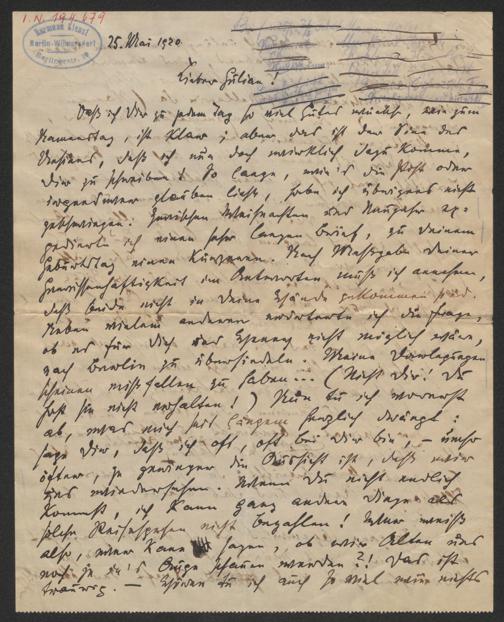 I.N. 194.679
Hermann Kienzl
Berlin-Wilmersdorf
25. Mai 1920.
Lieber Julian!
Daß ich Dir zu jedem Tag so viel Gutes wünsche, wie zum
Namenstag, ist klar; aber das ist der Sinn des
daß ich nun doch wirklich dazu komme,
Dir zu schreiben. So lange, wie's die Post oder
irgendwer glauben ließ, habe ich übrigens nicht
geschwiegen. Zwischen Weihnachten und Neujahr ex-
pedierte ich einen sehr langen Brief, zu Deinem
Geburtstag einen kürzeren. Nach Maßgabe Deiner
Gewissenhaftigkeit im Antworten muß ich annehmen,
daß beide nicht in Deine Hände gekommen sind.
Neben vielem anderen erörterte ich die Frage,
ob es für Dich und nicht möglich wäre,
nach Berlin zu übersiedeln. Meine Darlegungen
scheinen mißfallen zu haben... (Nicht Dir! Du
hast sie nicht erhalten!) Nun tu ich vorerst
ab, was mich seit langem herzlich drängt:
sage Dir, daß ich oft, oft bei Dir bin, – umso
öfter, je geringer die Aussicht ist, daß wir
uns wiedersehen. Wenn Du nicht endlich
kommst, ich kann ganz andere Dinge als
solche Reisespesen nicht bezahlen! Wer weiß
also, wer kann sagen, ob wir Alten uns
noch je in's Auge schauen werden?! Das ist
traurig. – tu ich auch so viel wie nichts